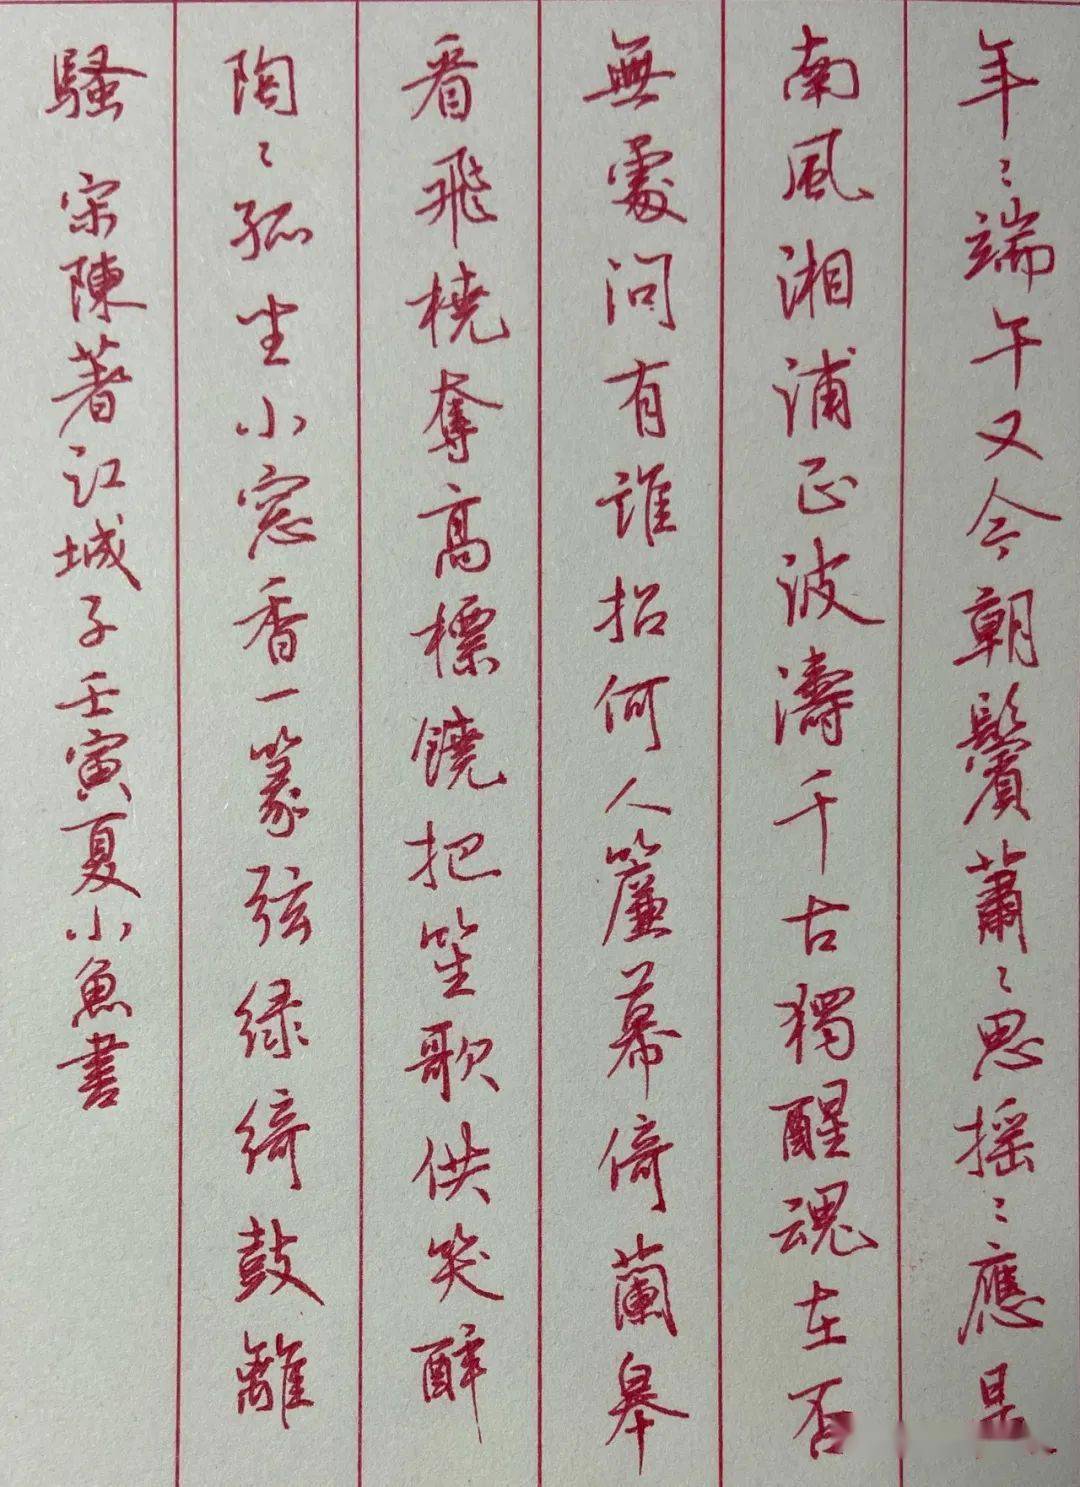 年〻端午又今朝鬢蕭〻思摇〻應是
南風湘浦正波濤千古獨醒魂在否
無處問有誰招何人簾幕倚蘭皋
看飛橈奪高標饒把笙歌供笑醉
陶〻孤坐小窓香一篆弦绿綺鼓離
騷 宋陳著江城子壬寅夏小魚書